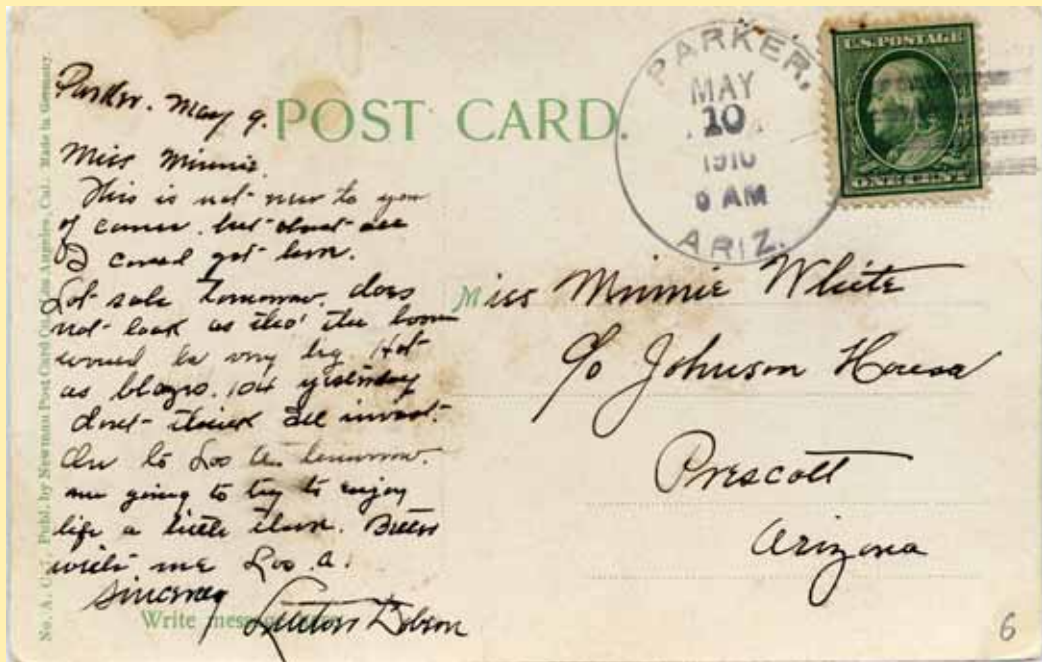 No. A. C. Publ. by Newman Post Card Co., Los Angeles, Cal. Made in Germany.
POST CARD.
PARKER,
MAY
10
1910
9 AM
ARIZ.
U.S. POSTAGE
ONE CENT
Parker. May 9.
Miss Minnie.
This is not new to you
of course. but about all
I could get here.
Lot sale tomorrow. does
not look as tho' the boom
would be very big. Hot
as blazes. 104 yesterday
dont think I'll invest.
On to Los A. tomorrow.
going to try to enjoy
life a little there.
write me Los. A.
Sincerely
Write
Miss Minnie White
c/o Johnson House
Prescott
Arizona
6